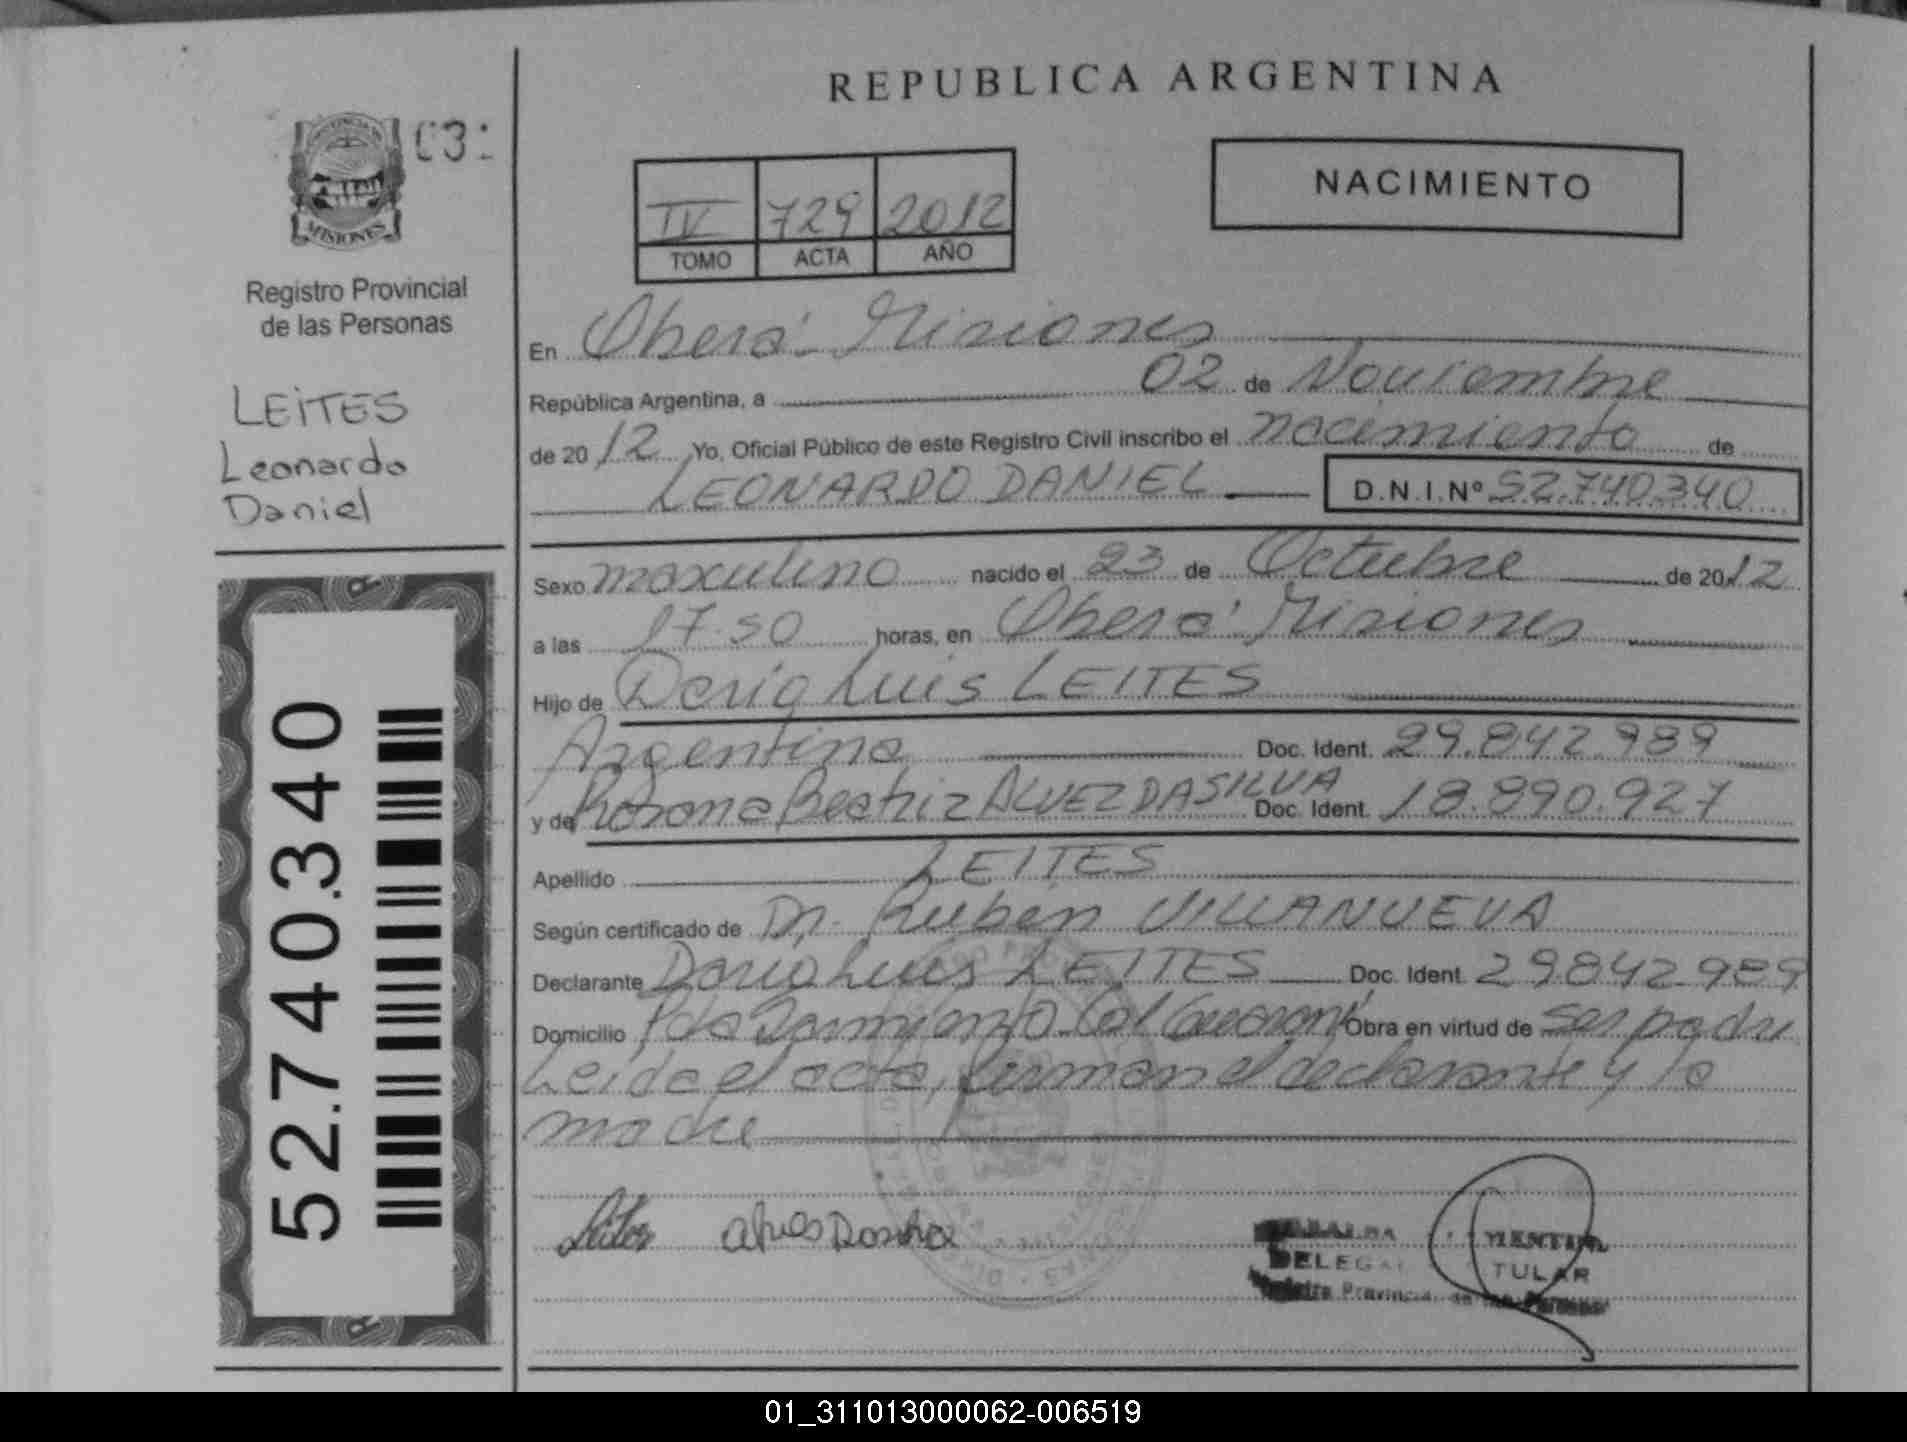 REPUBLICA ARGENTINA
PROVINCIA DE
MISIONES
Registro Provincial
de las Personas
LEITES
Leonardo
Daniel
52.740.340
IV 729 2012
TOMO ACTA AÑO
NACIMIENTO
En Oberá - Misiones
República Argentina, a 02 de Noviembre
de 2012 Yo, Oficial Público de este Registro Civil inscribo el nacimiento de
LEONARDO DANIEL D.N.I.Nº 52.740.340
Sexo masculino nacido el 23 de Octubre de 2012
a las 17.50 horas, en Oberá Misiones
Hijo de Dario Luis LEITES
Argentina Doc. Ident. 29.842.989
y de Rosana Beatriz ALVEZ DA SILVA Doc. Ident. 18.890.927
Apellido LEITES
Según certificado de Dr. Ruben VILLANUEVA
Declarante Dario Luis LEITES Doc. Ident. 29.842.989
Domicilio Pda Sarmiento Col Guaraní Obra en virtud de ser padre
Leida el acta, firman el declarante y la
madre
Leites
TULAR
01_311013000062-006519